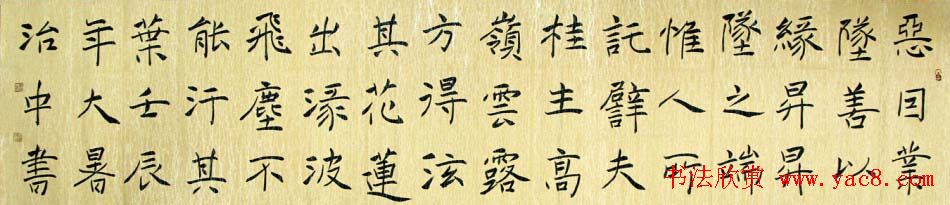 惡囙業
墜善以
緣昇昇
墜之端
惟人所
託譬夫
桂生高
嶺雲露
方得泫
其花蓮
出淥波
飛塵不
能汙其
葉壬辰
年大暑
治中書
书法欣赏 www.yac8.com